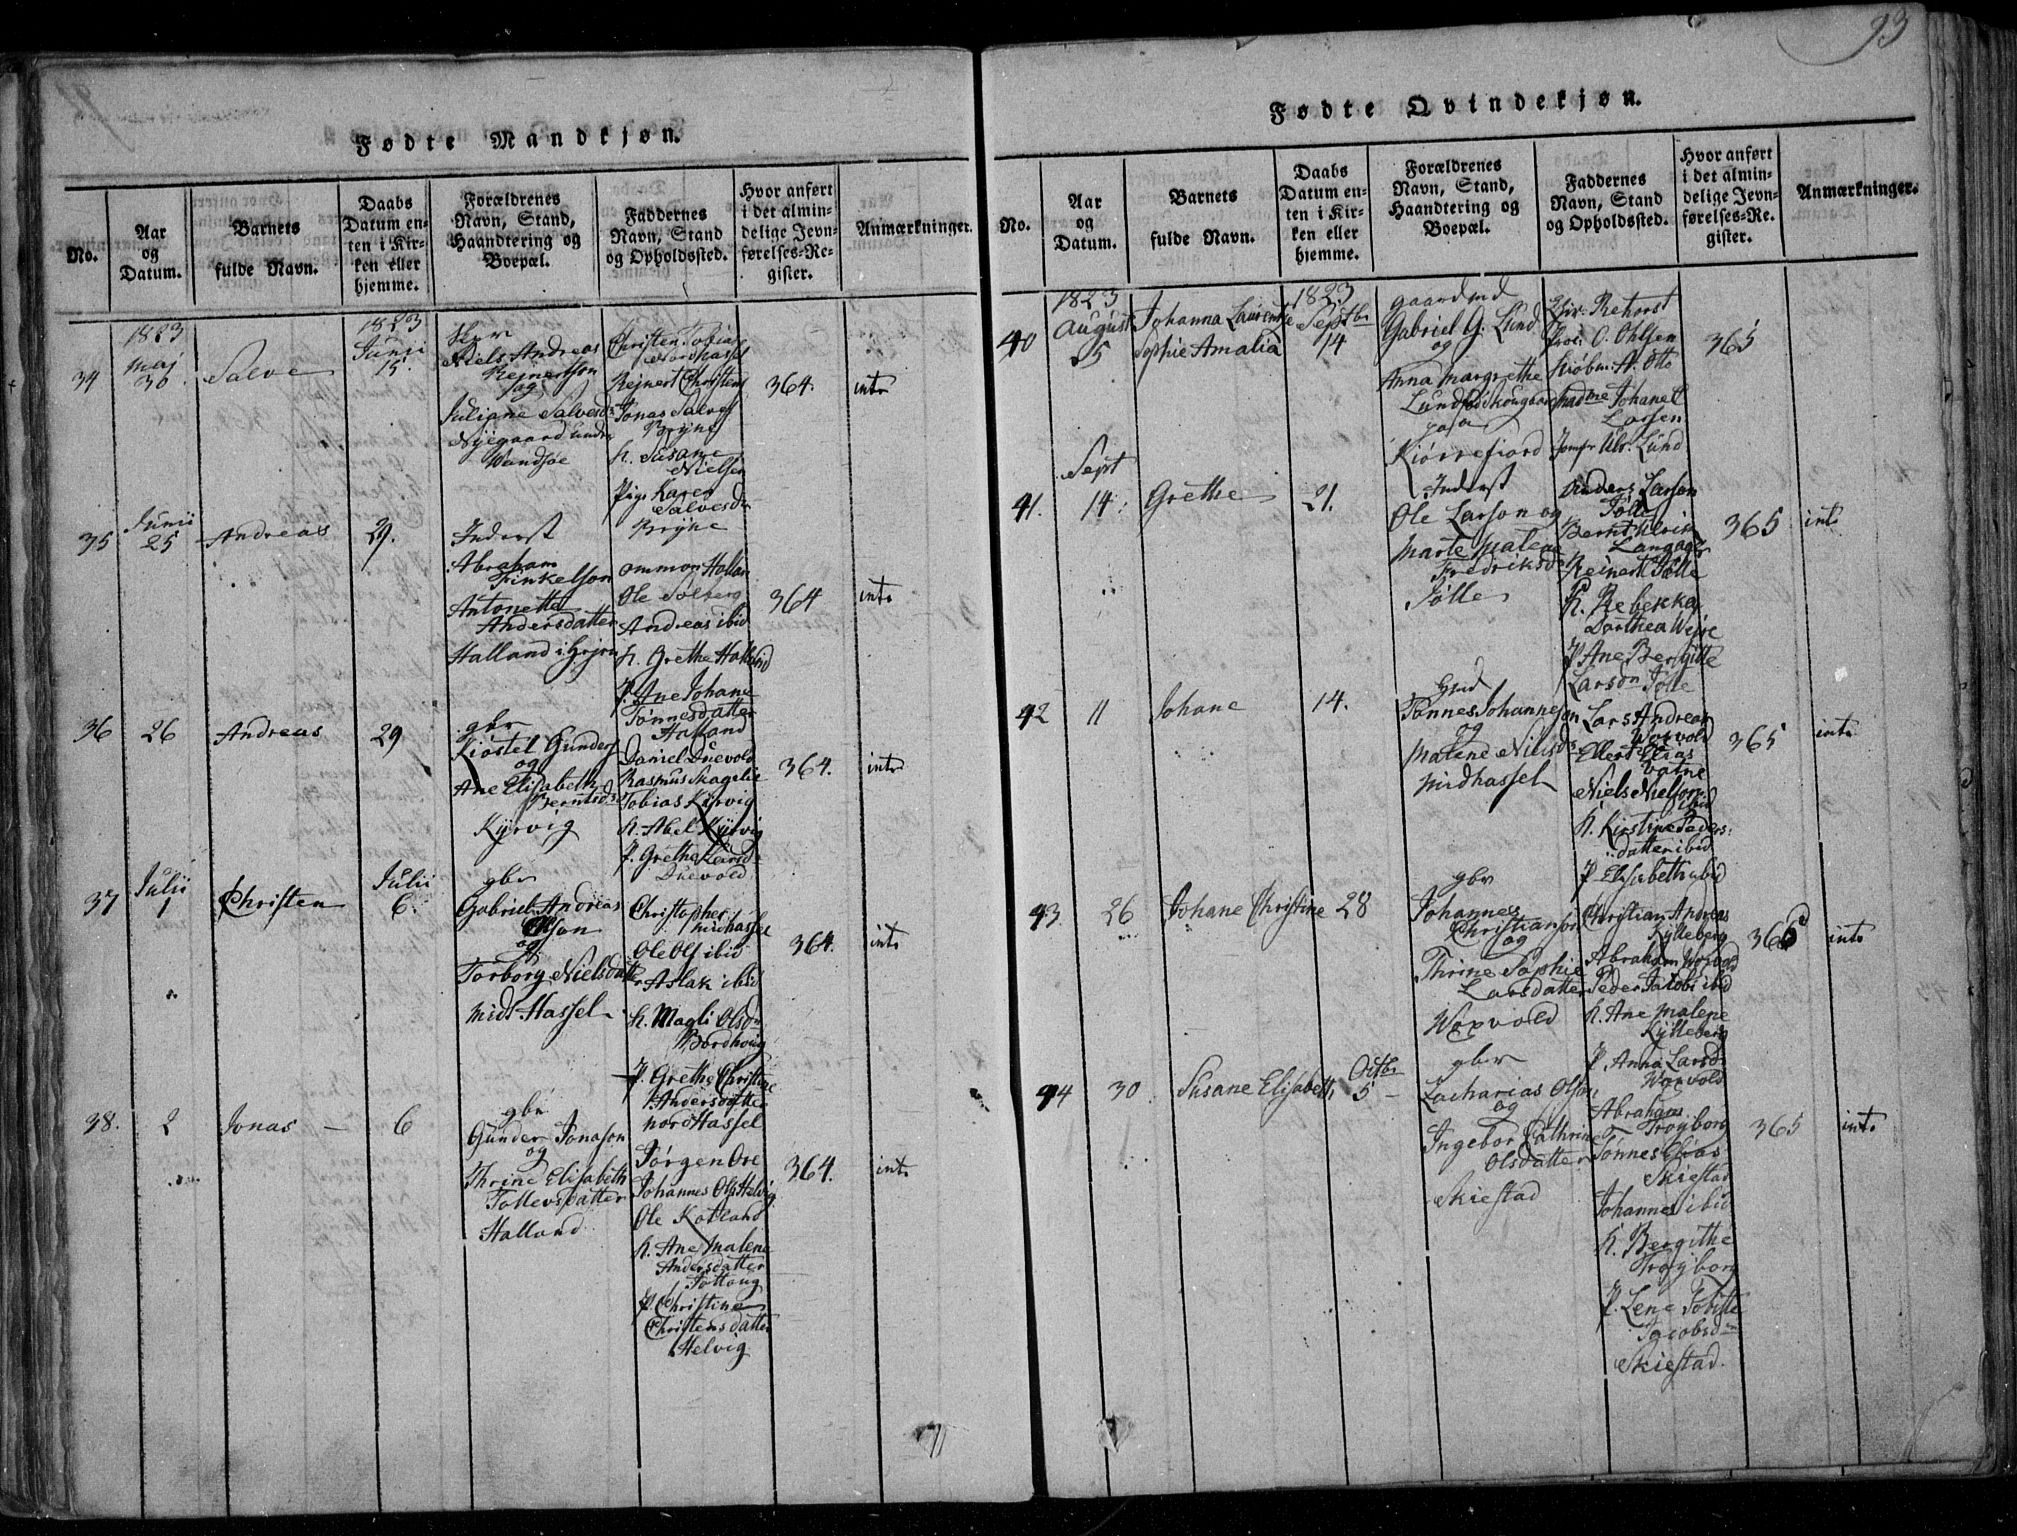 93
Fødte Mandkjøn.
No.
Aar
og
Datum.
Barnets
fulde Navn.
Daabs
Datum en-
ten i Kir-
ken eller
hjemme.
Forældrenes
Navn, Stand,
Haandtering og
Boepæl.
Faddernes
Navn, Stand
og Opholdssted.
Hvor anført
i det almin-
delige Jevn-
førelses-Re-
gister.
Anmærkninger.
34
1823
Maj
30.
Salve
1823
Junii
15.
Niels Andreas
Rejnertson
og
Juliane Salvesd:
Nyegaard
Christen Tobias
Nordhassel
Rejnert Christens
Jonas Salves
Bryne
K. Susane
Nielsen
Pige Karen
Salvesd:
Bryne
364.
int.
35
Junii
25
Andreas
29.
Inderst
Abraham
Finkelson
Antonette
Andersdatter
Halland i
Ommon Hollan
Ole Solberg
Andreas ibid
K. Grethe Halland
P. Ane Johane
Tønnesdatter
Halland
364
int.
36
26
Andreas
29
gbr
Kiøstel Gunders
og
Ane Elisabeth
Berntsd:
Kyrvig
Daniel Duevold
Rasmus Skagelie
Tobias Kyrvig
K. Abel Kyrvig
P. Grethe Larsd:
Duevold
364.
int.
37
Julii
1
Christen
Julii
6.
gbr
Gabriel Andreas
Olson
og
Torborg Nielsdatter
Midt Hassel
Christopher
Midhassel
Ole Ols ibid
Aslak ibid
K. Magli Olsdn
Bordhoug
P. Grethe Christine
Andersdatter
Nordhassel
364.
int.
38.
2
Jonas
6
gbr
Gunder Jonason
og
Thrine Elisabeth
Tollevsdatter
Halland
Jørgen Ore
Johannes Ols Helvig
Ole Kotland
K. Ane Malene
Andersdatter
Tottoug
P. Christine
Christensdatter
Helvig
364.
int.
Fødte Qvindekjøn.
No.
Aar
og
Datum.
Barnets
fulde Navn.
Daabs
Datum en-
ten i Kir-
ken eller
hjemme.
Forældrenes
Navn, Stand,
Haandtering og
Boepæl.
Faddernes
Navn, Stand
og Opholdssted.
Hvor anført
i det almin-
delige Jevn-
førelses-Re-
gister.
Anmærkninger.
40
1823
August
5
Johanna Laurentze
Sophie Amalia
1823
Septbr
14
Gaardmd
Gabriel G. Lund
og
Anna Margrethe
Lund
Kiørrefiord
Rehorst
O. Ohlsen
Kiøbm. N. Otto
Madme Johane C
Larsen
Jomfr Ulr. Lund
365
41.
Sept
14.
Grethe
21.
Inderst
Ole Larson og
Marte Malene
Fredriksd
Jølle
Anders Larson
Jølle
Bernt Ulrik
Langager
Reinert Jølle
K. Rebekka
Dorthea Weise
P. Ane Bergitte
Larsdn Jølle
365
int.
42
11
Johane
14.
Tønnes Johanneson
og
Malene Nielsd:
Midhassel
Lars Andreas
Woxvold
Ellert Elias
Vatne
Niels Nielson
ibid
K. Kirstine Peders:
datter ibid
P. Elisabeth ibid
365
int.
43.
26
Johane Christine
28
gbr
Johannes
Christianson
og
Thrine Sophie
Larsdatter
Woxvold
Christian Andreas
Kylleberg
Abraham Woxvold
Peder Jacobs ibid
K. Ane Malene
Kylleberg
P. Anna Larsdn
Woxvold
365
int.
44
30
Susane Elisabeth
Octbr
5
gbr
Zacharias Olson
og
Ingebor Cathrine
Olsdatter
Skiestad
Abraham
Trøyborg
Tønnes Elias
Skiestad
Johannes ibid
K. Bergithe
Trøyborg
P. Lene Tobitte
Jacobsdn
Skiestad.
365
int.